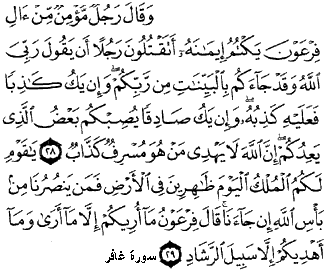 وَقَالَ رَجُلٌ مُّؤْمِنٌ مِّنْ ءَالِ
فِرْعَوْنَ يَكْتُمُ إِيمَٰنَهُۥٓ أَتَقْتُلُونَ رَجُلًا أَن يَقُولَ رَبِّيَ
ٱللَّهُ وَقَدْ جَآءَكُم بِٱلْبَيِّنَٰتِ مِن رَّبِّكُمْ ۖ وَإِن يَكُ كَٰذِبًا
فَعَلَيْهِ كَذِبُهُۥ ۖ وَإِن يَكُ صَادِقًا يُصِبْكُم بَعْضُ ٱلَّذِى
يَعِدُكُمْ ۖ إِنَّ ٱللَّهَ لَا يَهْدِى مَنْ هُوَ مُسْرِفٌ كَذَّابٌ ٢٨ يَٰقَوْمِ
لَكُمُ ٱلْمُلْكُ ٱلْيَوْمَ ظَٰهِرِينَ فِى ٱلْأَرْضِ فَمَن يَنصُرُنَا مِنۢ
بَأْسِ ٱللَّهِ إِن جَآءَنَا ۚ قَالَ فِرْعَوْنُ مَآ أُرِيكُمْ إِلَّا مَآ أَرَىٰ وَمَآ
أَهْدِيكُمْ إِلَّا سَبِيلَ ٱلرَّشَادِ ٢٩ سورة غافر